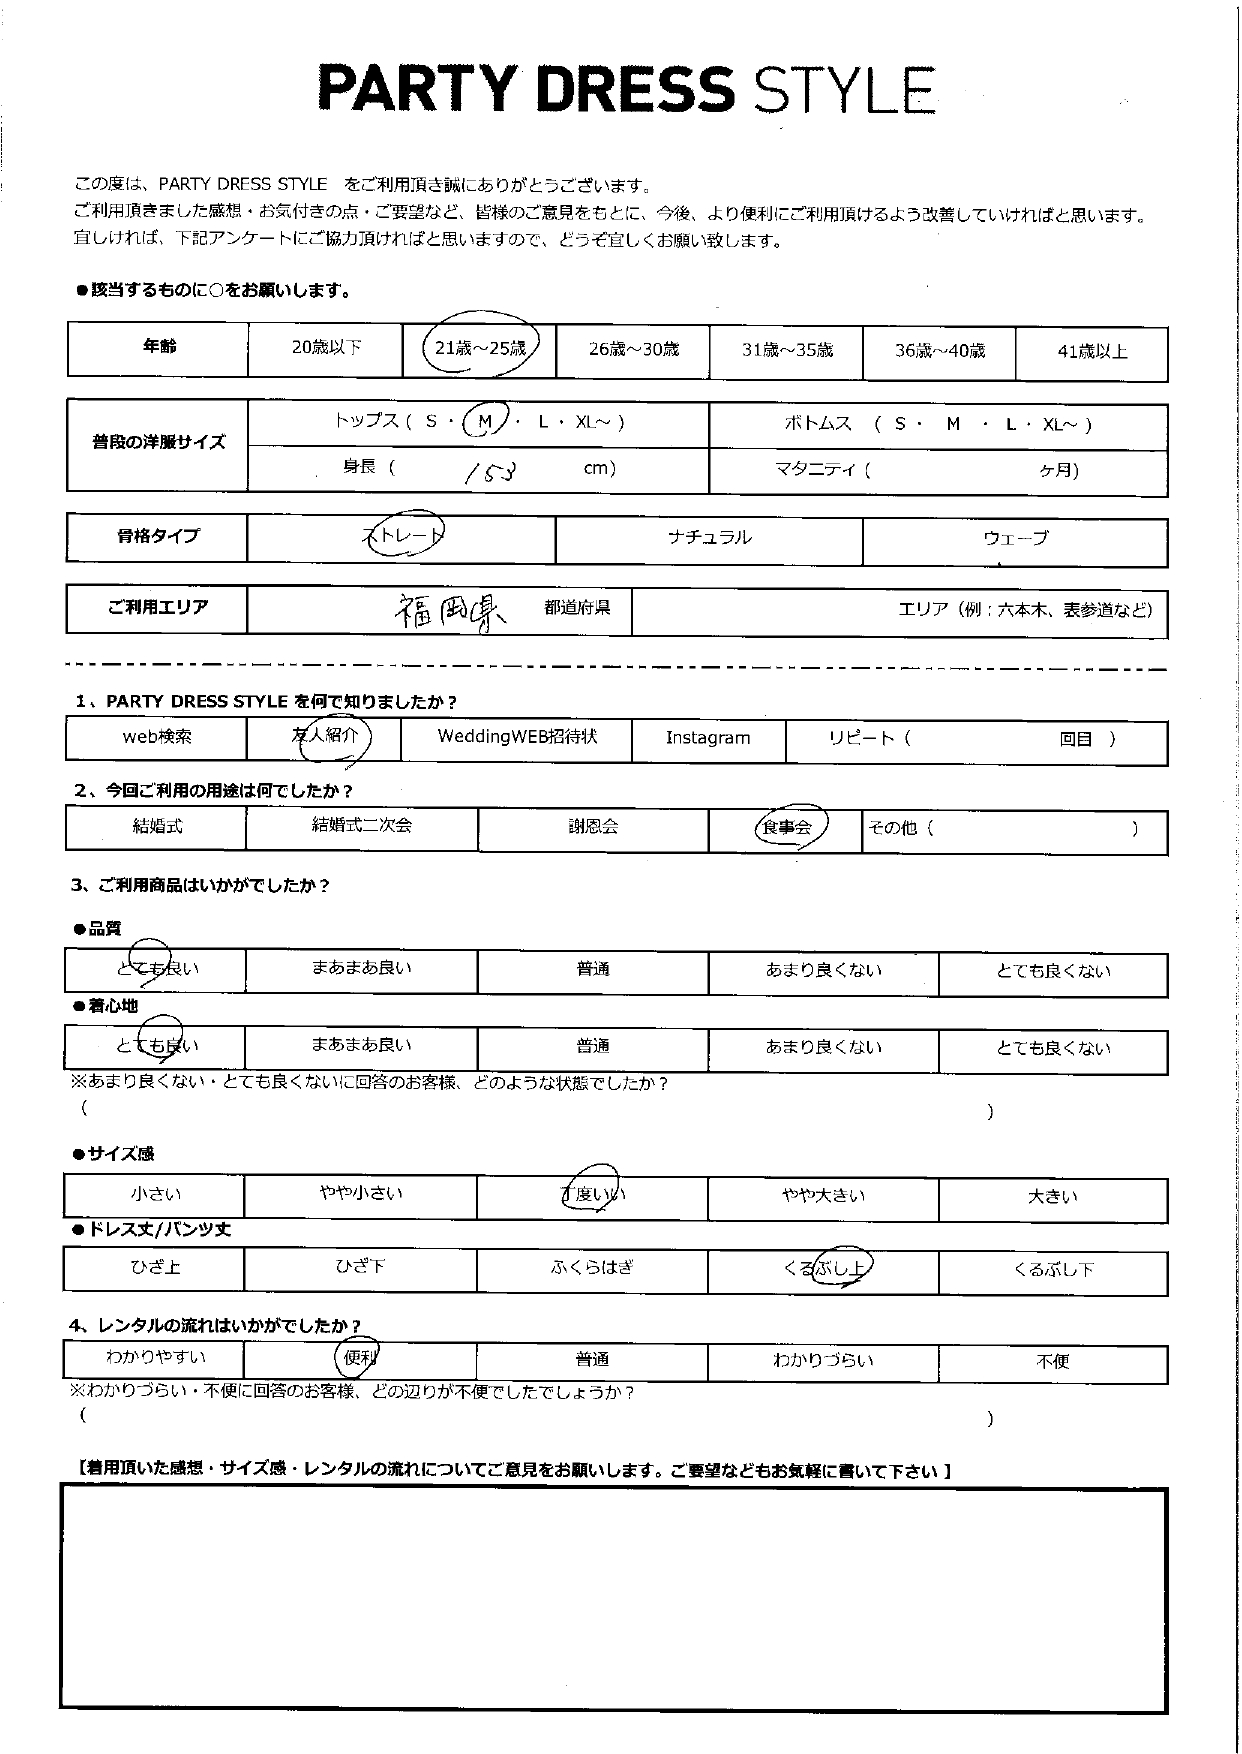 PARTY DRESS STYLE
この度は、PARTY DRESS STYLE をご利用頂き誠にありがとうございます。
ご利用頂きました感想・お気付きの点・ご要望など、皆様のご意見をもとに、今後、より便利にご利用頂けるよう改善していければと思います。
宜しければ、下記アンケートにご協力頂ければと思いますので、どうぞ宜しくお願い致します。
●該当するものに○をお願いします。
年齢 20歳以下 21歳～25歳 26歳～30歳 31歳～35歳 36歳～40歳 41歳以上
普段の洋服サイズ
トップス ( S ・ M ・ L ・ XL～ ) ボトムス ( S ・ M ・ L ・ XL～ )
身長 ( 153 cm) マタニティ ( ヶ月)
骨格タイプ ストレート ナチュラル ウェーブ
ご利用エリア 福岡県 都道府県 エリア（例：六本木、表参道など）
1、PARTY DRESS STYLE を何で知りましたか？
web検索 友人紹介 WeddingWEB招待状 Instagram リピート ( 回目 )
2、今回ご利用の用途は何でしたか？
結婚式 結婚式二次会 謝恩会 食事会 その他 ( )
3、ご利用商品はいかがでしたか？
●品質
とても良い まあまあ良い 普通 あまり良くない とても良くない
●着心地
とても良い まあまあ良い 普通 あまり良くない とても良くない
※あまり良くない・とても良くないに回答のお客様、どのような状態でしたか？
( )
●サイズ感
小さい やや小さい 丁度いい やや大きい 大きい
●ドレス丈/パンツ丈
ひざ上 ひざ下 ふくらはぎ くるぶし上 くるぶし下
4、レンタルの流れはいかがでしたか？
わかりやすい 便利 普通 わかりづらい 不便
※わかりづらい・不便に回答のお客様、どの辺りが不便でしたでしょうか？
( )
【着用頂いた感想・サイズ感・レンタルの流れについてご意見をお願いします。ご要望などもお気軽に書いて下さい 】